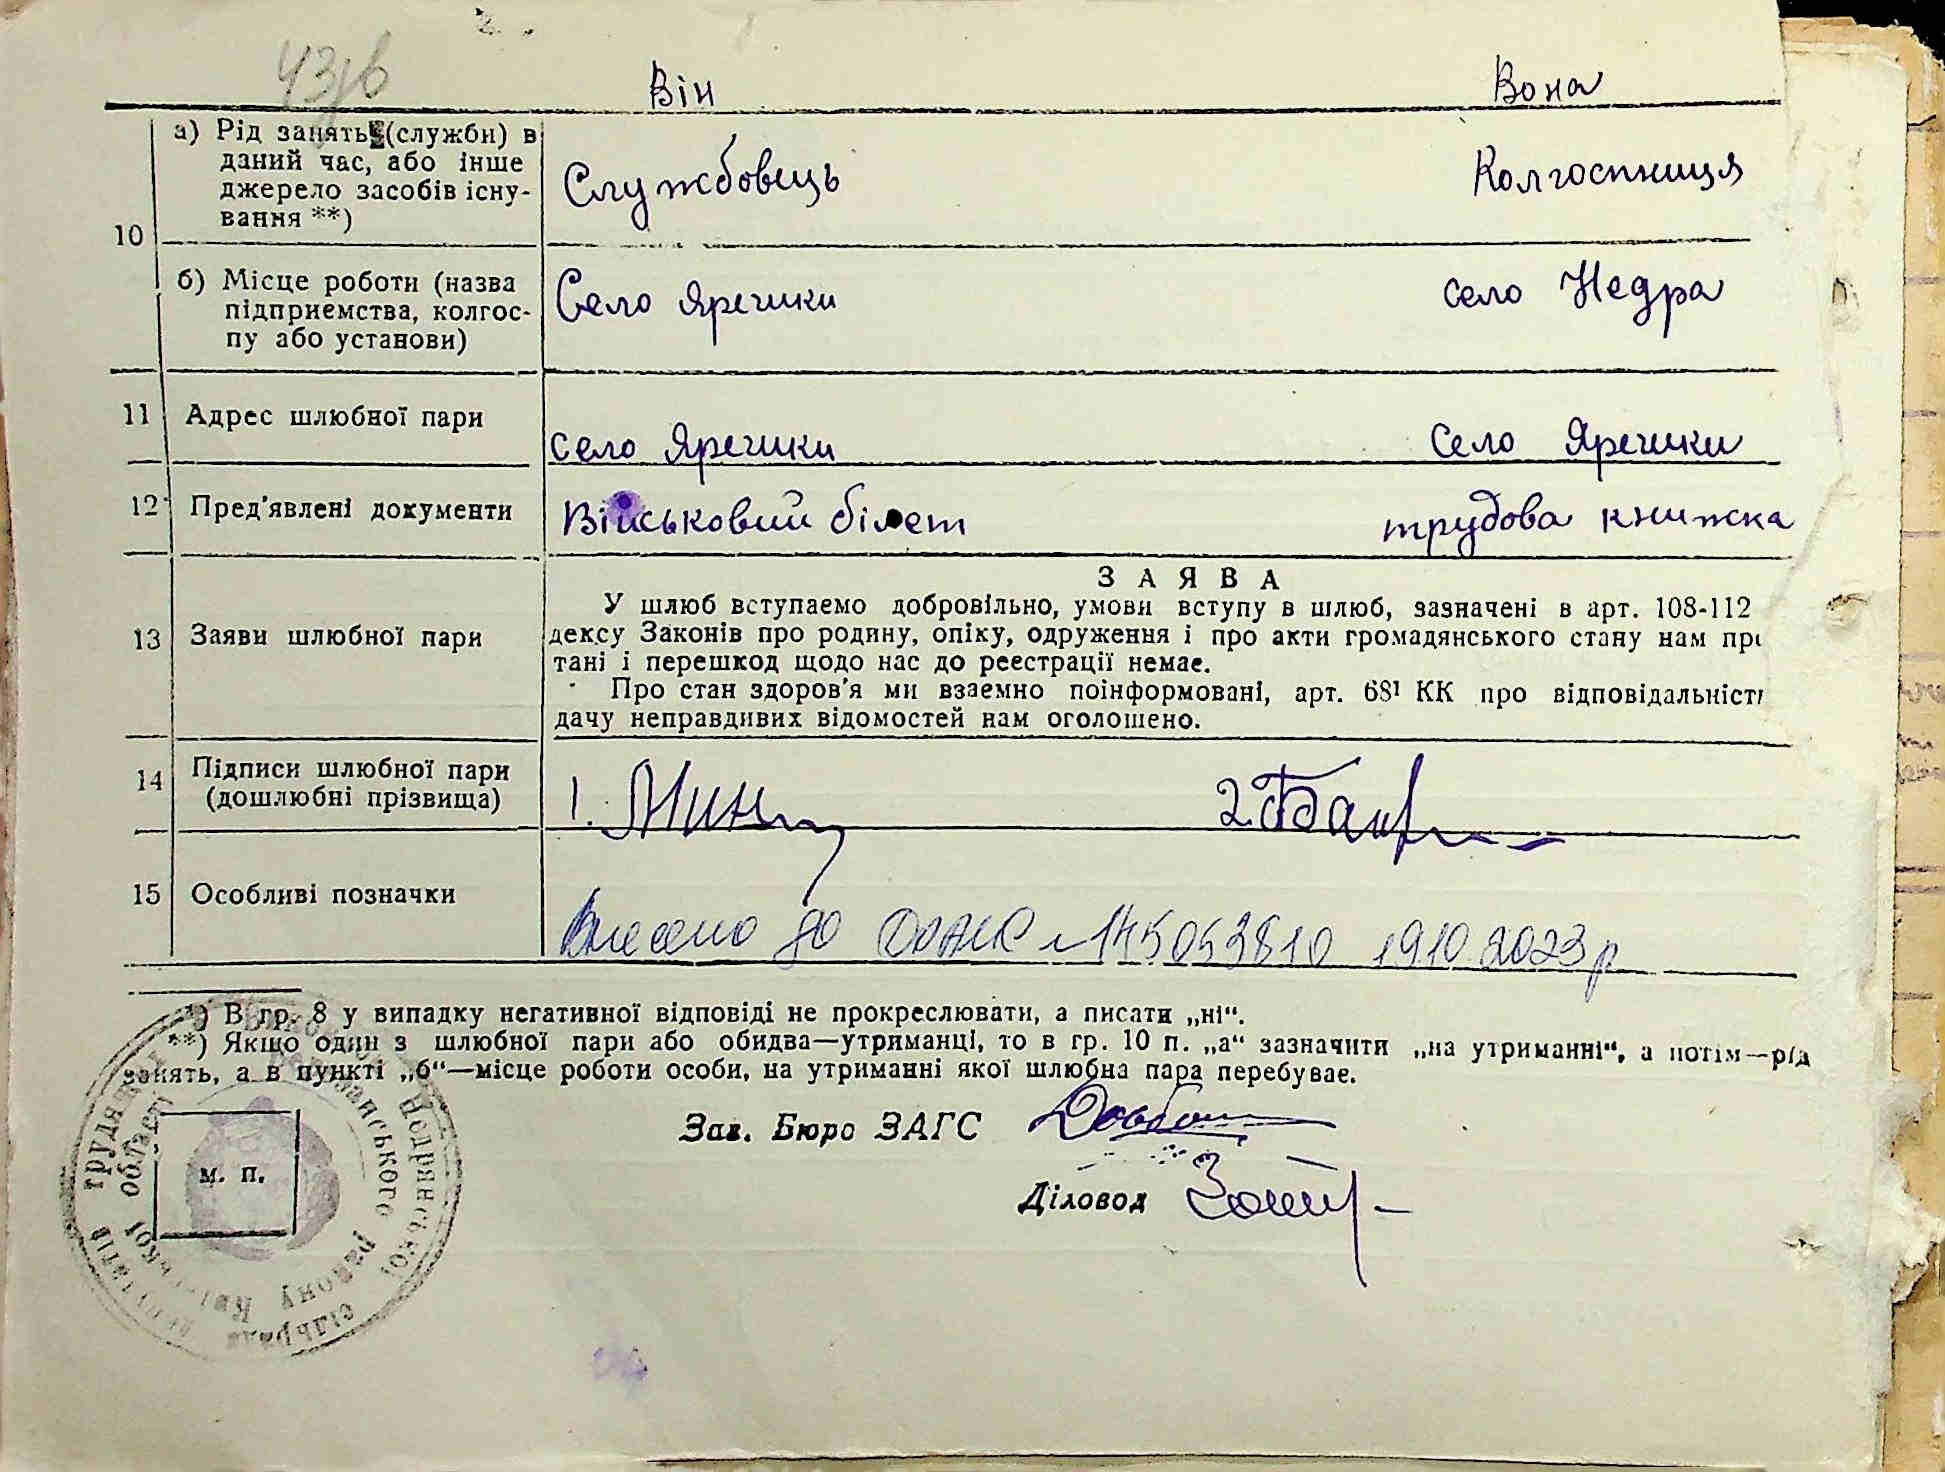 43зв
Він Вона
10
а) Рід занять (служби) в
даний час, або інше
джерело засобів існу-
вання **)
Службовець Колгоспниця
б) Місце роботи (назва
підприємства, колгос-
пу або установи)
Село Яречики село Недра
11 Адрес шлюбної пари
село Яречики Село Яречики
12 Пред'явлені документи
Військовий білет трудова книжка
13 Заяви шлюбної пари
ЗАЯВА
У шлюб вступаємо добровільно, умови вступу в шлюб, зазначені в арт. 108-112
дексу Законів про родину, опіку, одруження і про акти громадянського стану нам пр
тані і перешкод щодо нас до реєстрації немає.
Про стан здоров'я ми взаємно поінформовані, арт. 68¹ КК про відповідальніст
дачу неправдивих відомостей нам оголошено.
14 Підписи шлюбної пари
(дошлюбні прізвища)
1. 2.
15 Особливі позначки
Внесено до ДРАЦС 19.10.2023р
*) В гр. 8 у випадку негативної відповіді не прокреслювати, а писати „ні“.
**) Якщо один з шлюбної пари або обидва—утриманці, то в гр. 10 п. „а“ зазначити „на утриманні“, а потім—рід
занять, а в пункті „б“—місце роботи особи, на утриманні якої шлюбна пара перебуває.
Зав. Бюро ЗАГС
Діловод
М. П.
Недрянської сільради депутатів трудящих
району Київської області